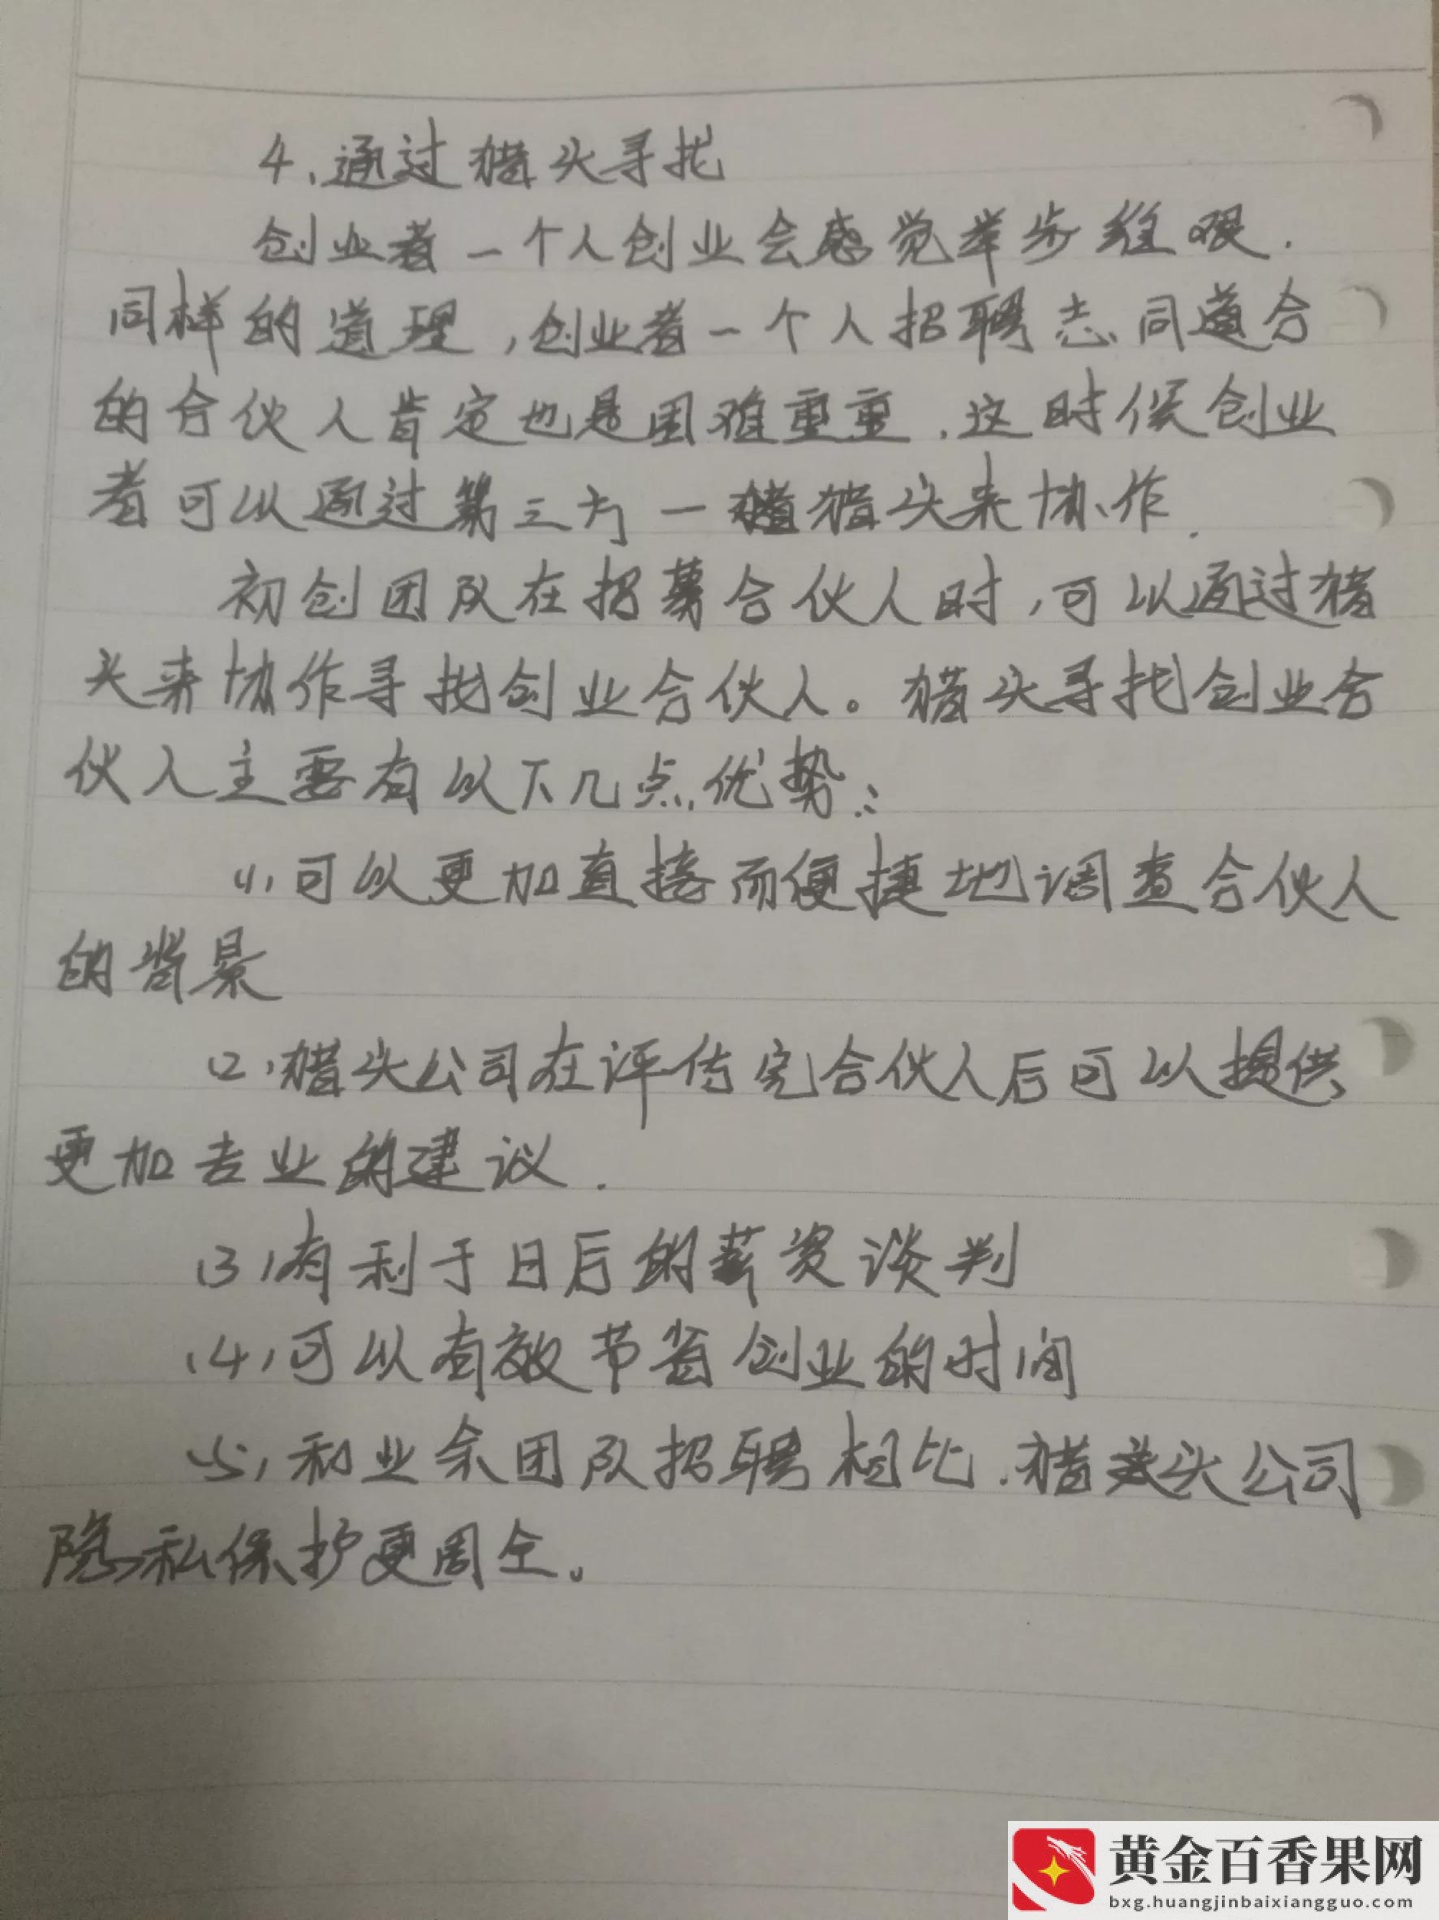 4、通过猎头寻找
创业者一个人创业会感觉举步维艰.
同样的道理,创业者一个人招聘志同道合
的合伙人肯定也是困难重重.这时候创业
者可以通过第三方一猎头来协作.
初创团队在招募合伙人时,可以通过猎
头来协作寻找创业合伙人。猎头寻找创业合
伙人主要有以下几点优势:
(1)可以更加直接而便捷地调查合伙人
的背景
(2)猎头公司在评估完合伙人后可以提供
更加专业的建议.
(3)有利于日后的薪资谈判
(4)可以有效节省创业的时间
(5)和业余团队招聘相比.猎头公司
隐私保护更周全。
黄金百香果网
bxg.huangjinbaixiangguo.com